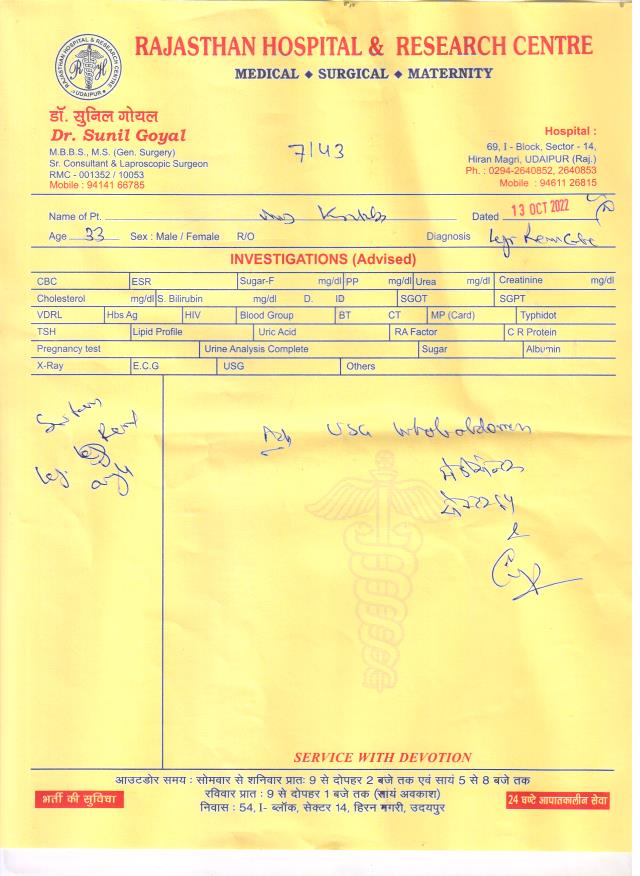 RAJASTHAN HOSPITAL & RESEARCH CENTRE
RAJASTHAN HOSPITAL & RESEARCH CENTRE
UDAIPUR
MEDICAL ◆ SURGICAL ◆ MATERNITY
डॉ. सुनिल गोयल
Dr. Sunil Goyal
M.B.B.S., M.S. (Gen. Surgery)
Sr. Consultant & Laproscopic Surgeon
RMC - 001352 / 10053
Mobile : 94141 66785
7/43
Hospital :
69, I - Block, Sector - 14,
Hiran Magri, UDAIPUR (Raj.)
Ph. : 0294-2640852, 2640853
Mobile : 94611 26815
Name of Pt. Dated 13 OCT 2022
Age 33 Sex : Male / Female R/O Diagnosis
INVESTIGATIONS (Advised)
CBC ESR Sugar-F mg/dl PP mg/dl Urea mg/dl Creatinine mg/dl
Cholesterol mg/dl S. Bilirubin mg/dl D. ID SGOT SGPT
VDRL Hbs Ag HIV Blood Group BT CT MP (Card) Typhidot
TSH Lipid Profile Uric Acid RA Factor C R Protein
Pregnancy test Urine Analysis Complete Sugar Albumin
X-Ray E.C.G USG Others
Adv USG whole abdomen
SERVICE WITH DEVOTION
आउटडोर समय : सोमवार से शनिवार प्रातः 9 से दोपहर 2 बजे तक एवं सायं 5 से 8 बजे तक
रविवार प्रात : 9 से दोपहर 1 बजे तक (सायं अवकाश)
निवास : 54, I- ब्लॉक, सेक्टर 14, हिरन मगरी, उदयपुर
भर्ती की सुविधा
24 घण्टे आपातकालीन सेवा